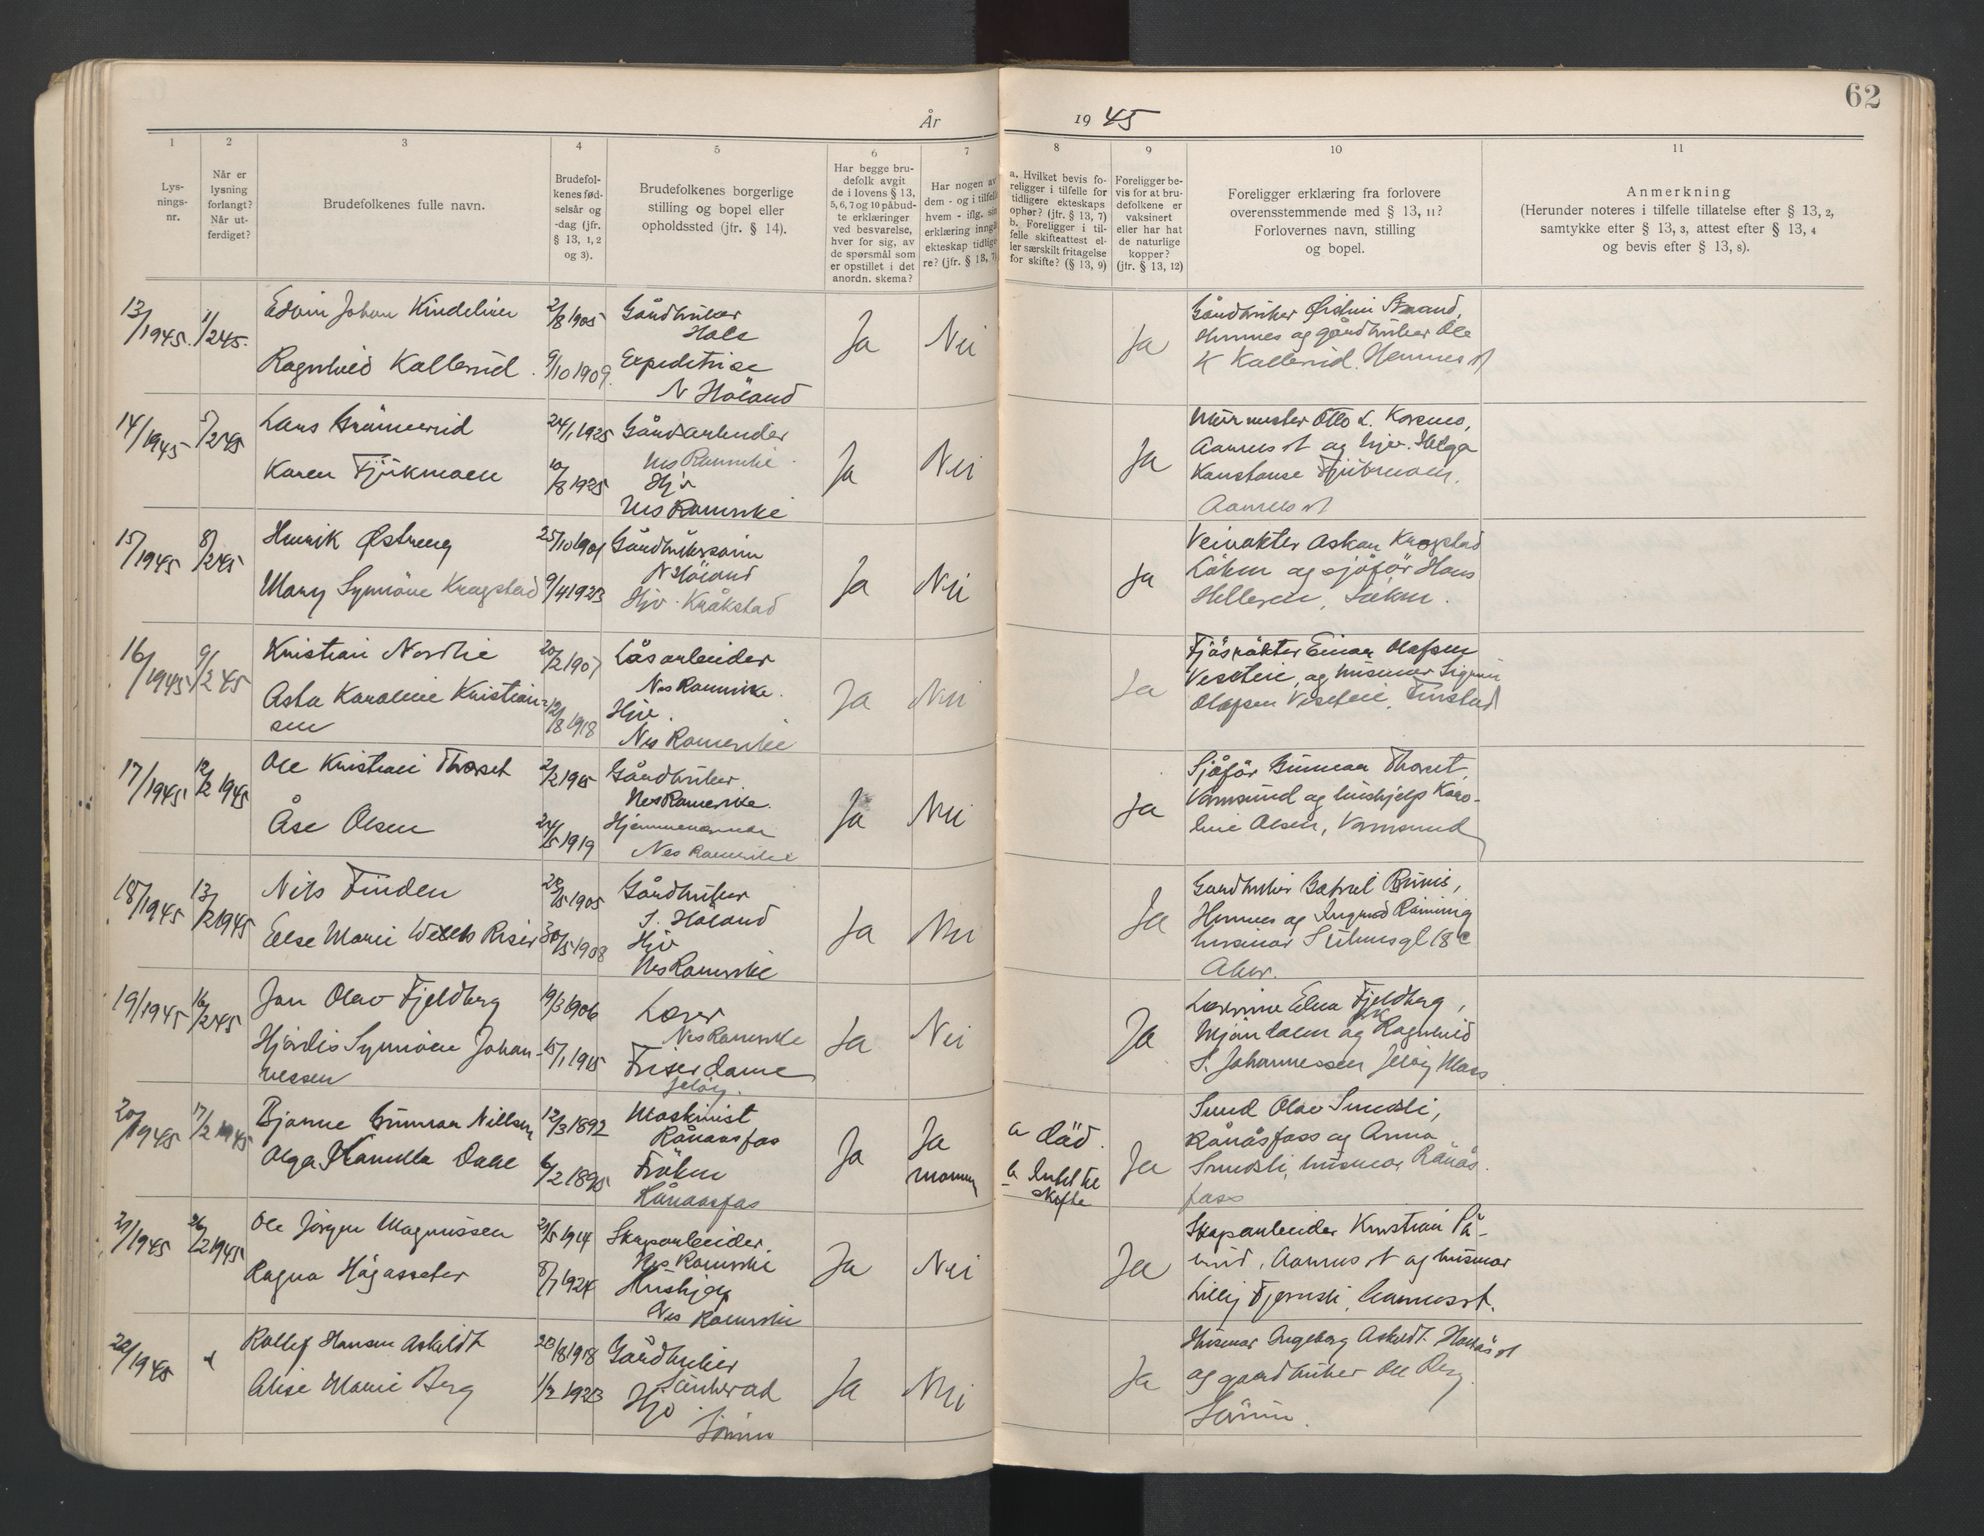 62
År
19 45
1
2
3
4
5
6
7
8
9
10
11
Lys-
nings-
nr.
Når er
lysning
forlangt?
Når ut-
ferdiget?
Brudefolkenes fulle navn.
Brudefol-
kenes fød-
selsår og
-dag (jfr.
§ 13, 1, 2
og 3).
Brudefolkenes borgerlige
stilling og bopel eller
opholdssted (jfr. § 14).
Har begge bru-
defolk avgit
de i lovens § 13,
5, 6, 7 og 10 påbud-
te erklæringer
ved besvarelse,
hver for sig, av
de spørsmål som
er opstillet i det
anordn. skema?
Har nogen av
dem - og i tilfelle
hvem - iflg. sin
erklæring inngått
ekteskap tidlige-
re? (jfr. § 13, 7)
a. Hvilket bevis fo-
religger i tilfelle for
tidligere ekteskaps
ophør? (jfr. § 13, 7)
b. Foreligger i til-
felle skifteattest el-
ler særskilt fritagelse
for skifte? (§ 13, 9)
Foreligger be-
vis for at bru-
defolkene er
vaksinert
eller har hat
de naturlige
kopper?
(jfr. § 13, 12)
Foreligger erklæring fra forlovere
overensstemmende med § 13, 11?
Forlovernes navn, stilling
og bopel.
Anmerkning
(Herunder noteres i tilfelle tillatelse efter § 13, 2,
samtykke efter § 13, 3, attest efter § 13, 4
og bevis efter § 13, 8).
13/1945. 1/2 45.
Edvin Johan 2/8 1905 Gårdbruker
Hole
Ragnhild Kallerud. 9/10 1909. Expeditrise
N Höland
Ja Nei Ja
Gårdbruker Strand,
Hemnes og gårdbruker Ole
Kallerud. Hemnes st
14/1945 /2 45
Lars 24/1 1925 Gårdarbeider
Nes Romerike.
Karen Fjukmoen 10/8 1925 Hjv
Nes Romerike
Ja Nei Ja
Murmester Otto L. Korsmo,
Aarnes st og hjv. Helga
Konstanse Fjukmoen,
Aarnes st
15/1945 8/2 45
Henrik Østreng 25/10 1901 Gårdbrukersönn
N Höland
Mary Synnöve Kragstad 9/4 1923 Hjv. Kråkstad
Ja Nei Ja
Veivokter Askar Kragstad
Löken og sjåfør Hans
Helleren, Löken.
16/1945 9/2 45
Kristian Nordlie 20/2 1907 arbeider
Nes Romerike.
Asta Karoline Kristian-
sen 12/8 1918 Hjv.
Nes Romerike
Ja Nei Ja
Fjösrökter Einar Olafsen
og husmor Sigrun
Olafsen
17/1945 12/2 1945
Ole Kristian Thoset 2/2 1915 Gårdbruker.
Nes Romerike.
Åse Olsen 24/5 1919 Hjemmeværende
Nes Romerike
Ja Nei Ja
Sjåför Gunnar Thoset,
Vormsund og hushjelp Karo-
line Olsen, Vormsund
18/1945 13/2 1945
Nils Finden 28/5 1905 Gårdbruker
S. Höland
Else Marie Riser 30/5 1908 Hjv
Nes Romerike
Ja Nei Ja
Gardbruker
Hemnes og Ingrid
husmor 18 c
Aker.
19/1945 16/2 45
Jan Olav Fjeldberg 19/3 1906 Lærer
Nes Romerike
Hjördis Synnöve Johan-
nessen 15/1 1915 Friserdame
Jelöy
Ja Nei Ja
Lærerinne Elna Fjeldberg,
Mjöndalen og Ragnhild
S. Johannessen Jelöy Moss
20/1945 17/2 1945
Bjarne Gunnar Nilsen 12/3 1892 Maskinist
Rånaasfos
Olga Kamilla Dahl 6/2 1895 Fröken
Rånaasfos
Ja Ja
mannen
a död.
b Intet
skifte
Ja
Olav
Rånåsfoss og Anna
husmor Rånås-
foss
21/1945 26/2 1945
Ole Jörgen Magnussen 21/5 1914 Skogsarbeider
Nes Romerike
Ragna Högasseter 8/7 1924 Hushjelp
Nes Romerike
Ja Nei Ja
Skogsarbeider Kristian
Aarnes st og husmor
Lilly
22/1945
Rollef Hansen Askildt 20/8 1918 Gårdbruker
Sauherad
Alise Marie Berg 1/2 1923 Hjv.
Sörum
Ja Nei Ja
Husmor Ingeborg Askildt
og gaardbruker Ole Berg.
Sörum.